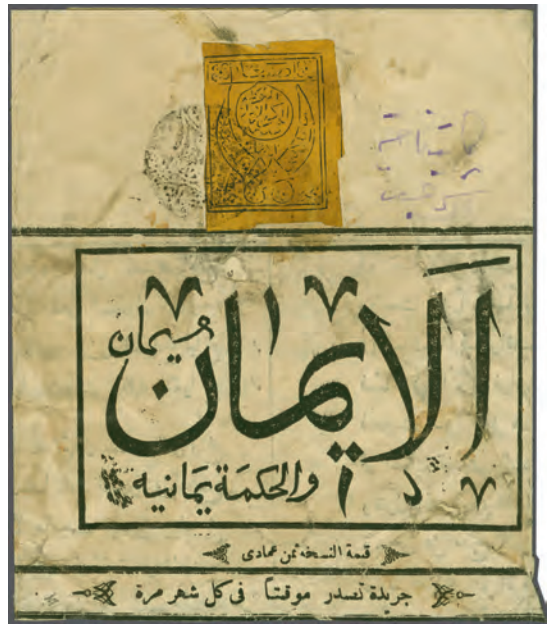 الايمان
يمان
والحكمة يمانية
قيمة النسخة ثمن عمادى
جريدة تصدر موقتاً فى كل شهر مرة